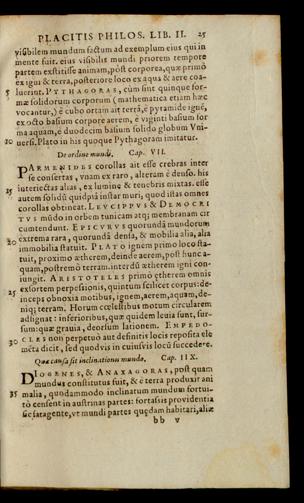 PLACITIS PHILOS. LIB. II. 25
visibilem mundum factum ad exemplum eius qui in
mente fuit. eius visibilis mundi priorem tempore
partem exstitisse animam, pòst corporea, quæ primò
ex igni & terra, posteriore loco ex aqua & aere coa-
5 luerint. PYTHAGORAS, cùm sint quinque for-
mæ solidorum corporum (mathematica etiam hæc
vocantur,) è cubo ortam ait terrā, è pyramide ignē,
ex octo basium corpore aerem, è viginti basium for
ma aquam, è duodecim basium solido globum Vni-
10 uersi. Plato in his quoque Pythagoram imitatur.
De ordine mundi. Cap. VII.
PARMENIDES corollas ait esse crebras inter
se consertas, vnam ex raro, alteram è denso. his
15 interiectas alias, ex lumine & tenebris mixtas. esse
autem solidū quidpiā instar muri, quod istas omnes
corollas obtineat. LEVCIPPVS & DEMOCRI
TVS mūdo in orbem tunicam atq; membranam cir
cumtendunt. EPICVRVS quorundā mundorum
20 extrema rara, quorundā densa, & mobilia alia, alia
immobilia statuit. PLATO ignem primo loco sta-
tuit, proximo ætherem, deinde aerem, post hunc a-
quam, postremò terram. interdū ætherem igni con-
iungit. ARISTOTELES primò ætherem omnis
25 exsortem perpessionis, quintum scilicet corpus: de-
inceps obnoxia motibus, ignem, aerem, aquam, de-
niq; terram. Horum cœlestibus motum circularem
adtignat: inferioribus, quæ quidem leuia sunt, sur-
sum: quæ grauia, deorsum lationem. EMPEDO-
30 CLES non perpetuò aut definitis locis reposita ele
mēta dicit, sed quoduis in cuiusuis locū succedere.
Quæ causa sit inclinationis mundo. Cap. IIX.
DIOGENES, & ANAXAGORAS, post quam
mundus constitutus fuit, & è terra produxit ani
35 malia, quodammodo inclinatum mundum fortui-
tò censent in austrinas partes: fortassis prouidentia
sic satagente, vt mundi partes quędam habitari, aliæ
bb v